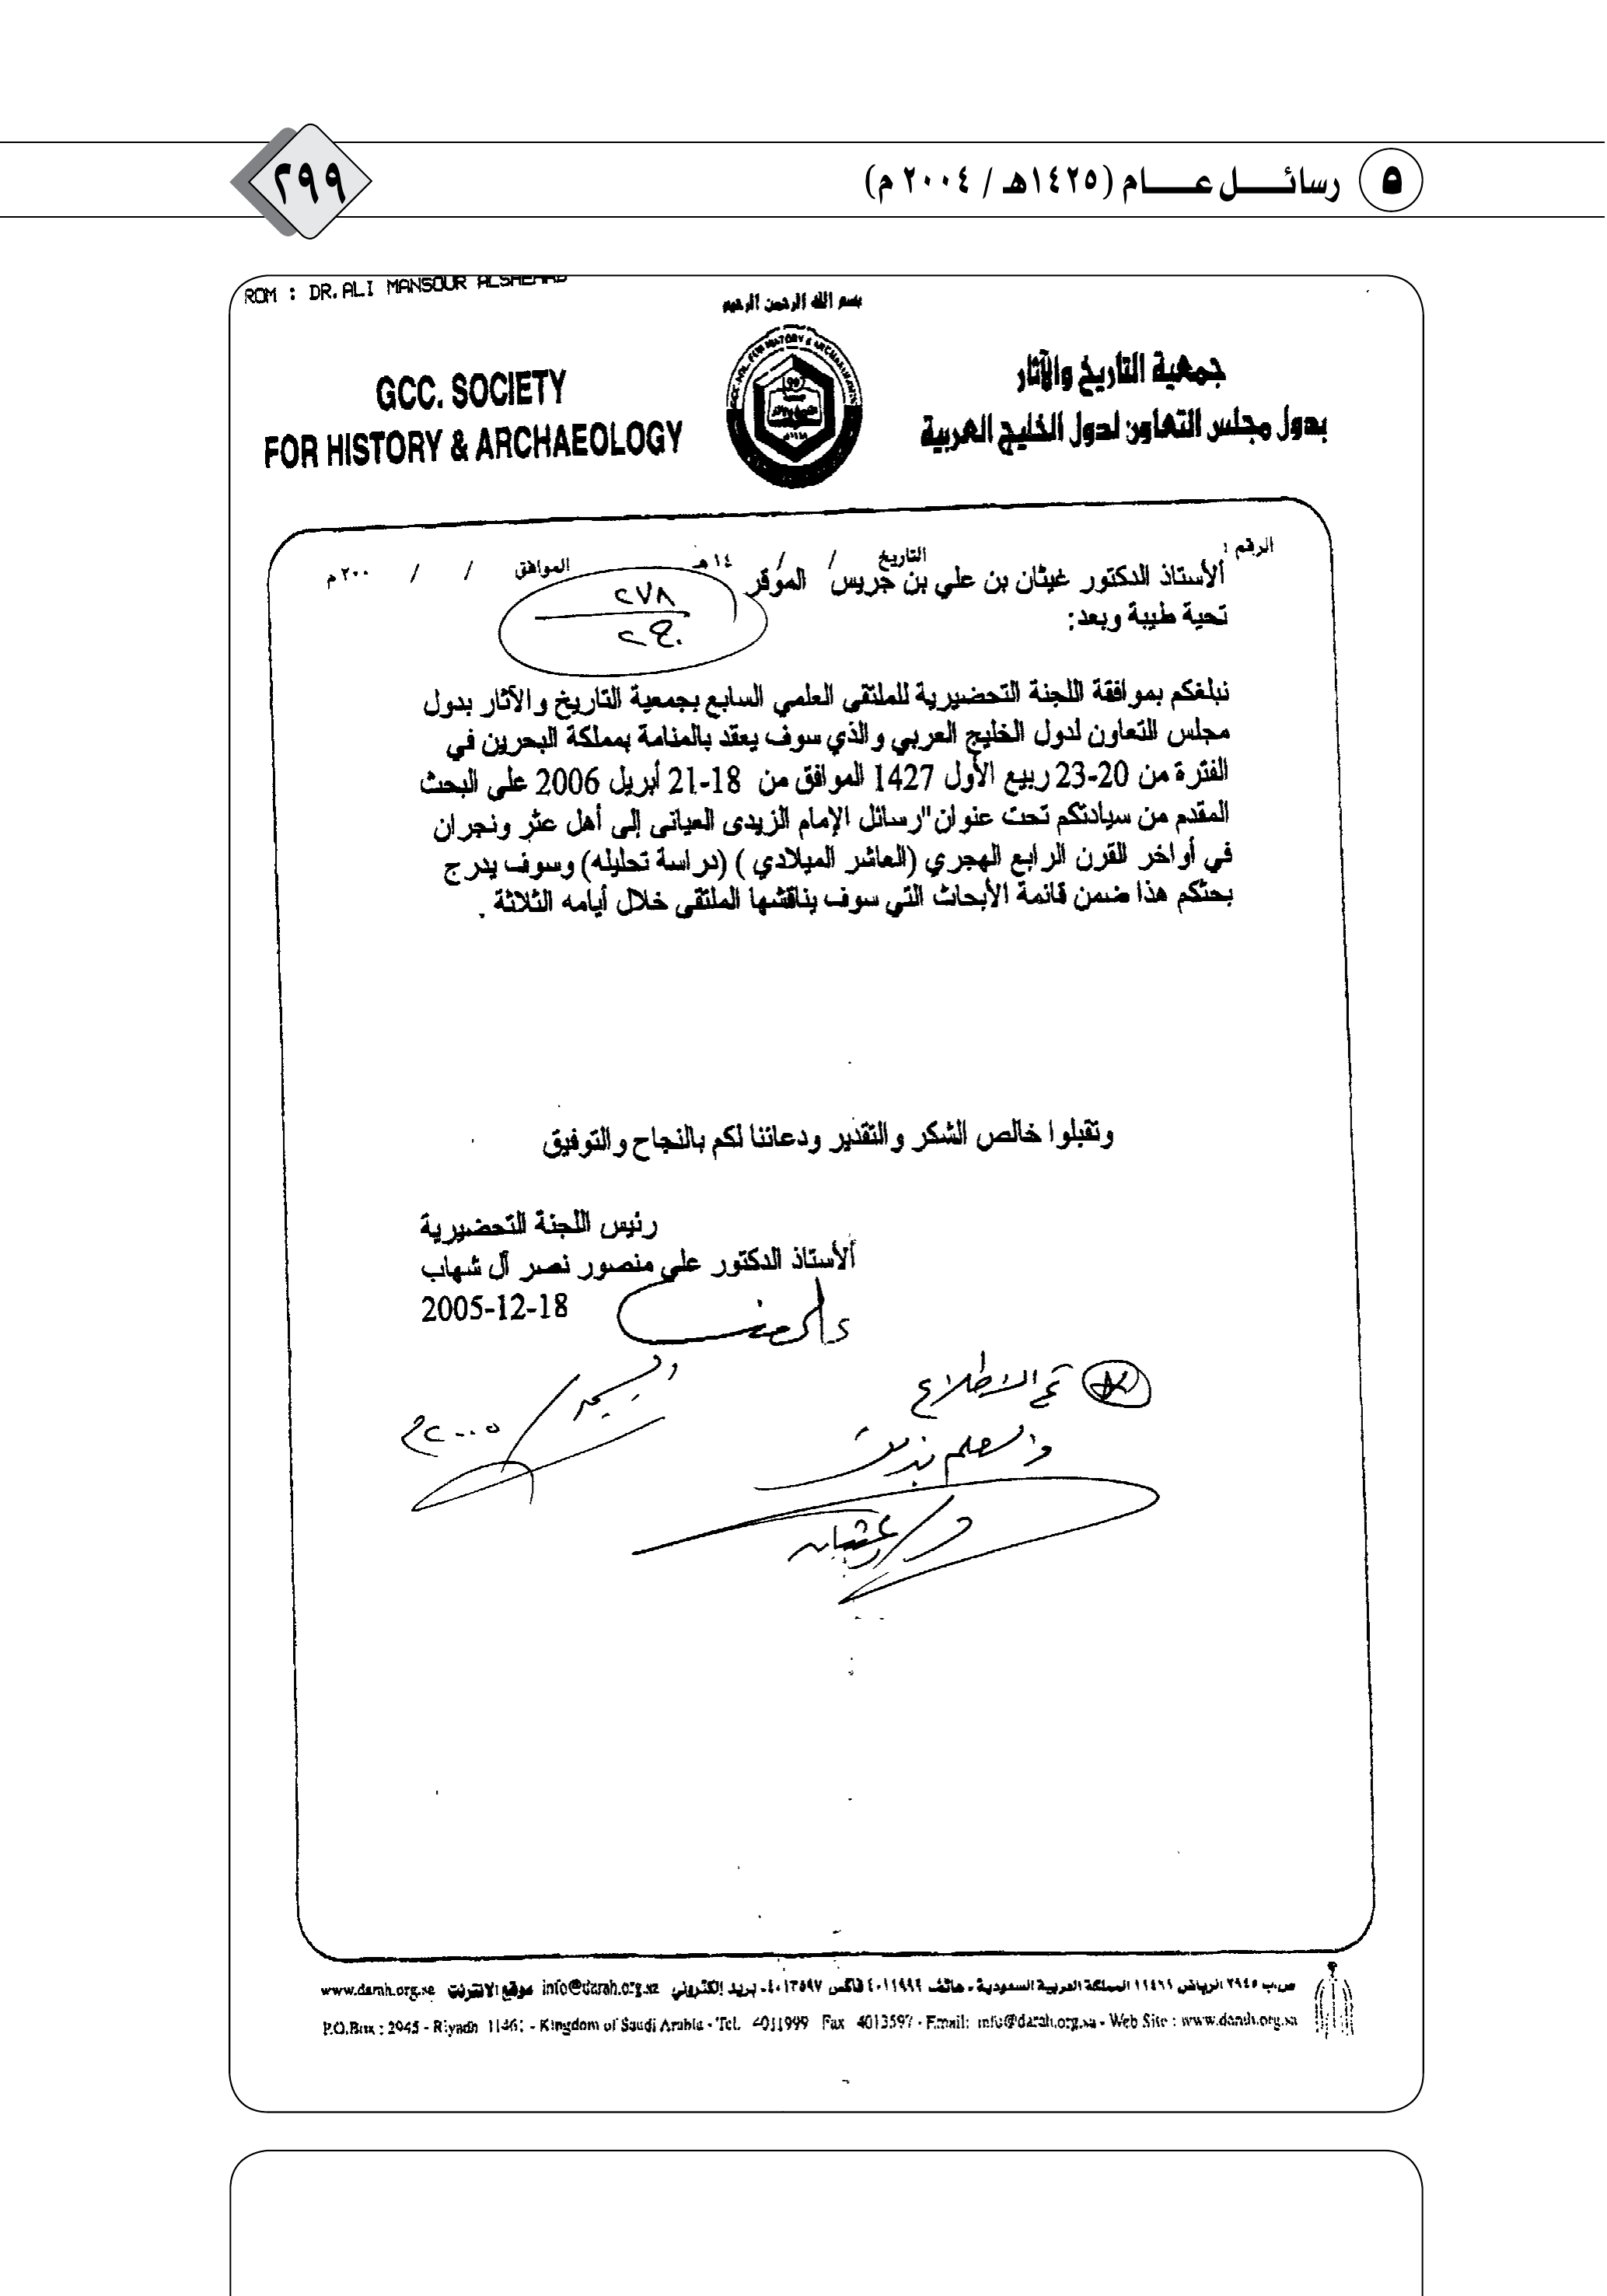 ٥ رسائل عام (١٤٢٥هـ / ٢٠٠٤ م)
٢٩٩
ROM : DR.ALI MANSOUR ALSHEHAB
بسم الله الرحمن الرحيم
جمعية التاريخ والآثار
بدول مجلس التعاون لدول الخليج العربية
GCC. SOCIETY
FOR HISTORY & ARCHAEOLOGY
الرقم : التاريخ / / ١٤هـ الموافق / / ٢٠٠م
الأستاذ الدكتور غيثان بن علي بن جريس الموقر
٢٧٨
تحية طيبة وبعد:
نبلغكم بموافقة اللجنة التحضيرية للملتقى العلمي السابع بجمعية التاريخ والآثار بدول
مجلس التعاون لدول الخليج العربي والذي سوف يعقد بالمنامة بمملكة البحرين في
الفترة من 20-23 ربيع الأول 1427 الموافق من 18-21 أبريل 2006 على البحث
المقدم من سيادتكم تحت عنوان"رسائل الإمام الزيدى العيانى إلى أهل عثر ونجران
في أواخر القرن الرابع الهجري (العاشر الميلادي ) (دراسة تحليله) وسوف يدرج
بحثكم هذا ضمن قائمة الأبحاث التي سوف يناقشها الملتقى خلال أيامه الثلاثة .
وتقبلوا خالص الشكر والتقدير ودعائنا لكم بالنجاح والتوفيق
رئيس اللجنة التحضيرية
الأستاذ الدكتور علي منصور نصر آل شهاب
2005-12-18
تم الاطلاع
والعلم بذلك
د/ غيثان
٢٠٠٥م
ص.ب ٢٩٤٥ الرياض ١١٤٦١ المملكة العربية السعودية - هاتف ٤٠١١٩٩٩ فاكس ٤٠١٣٥٩٧- بريد إلكتروني info@darah.org.sa موقع الانترنت www.darah.org.sa
P.O.Box : 2945 - Riyadh 11461 - Kingdom of Saudi Arabia - Tel. 4011999 Fax 4013597 - Email: info@darah.org.sa - Web Site : www.darah.org.sa